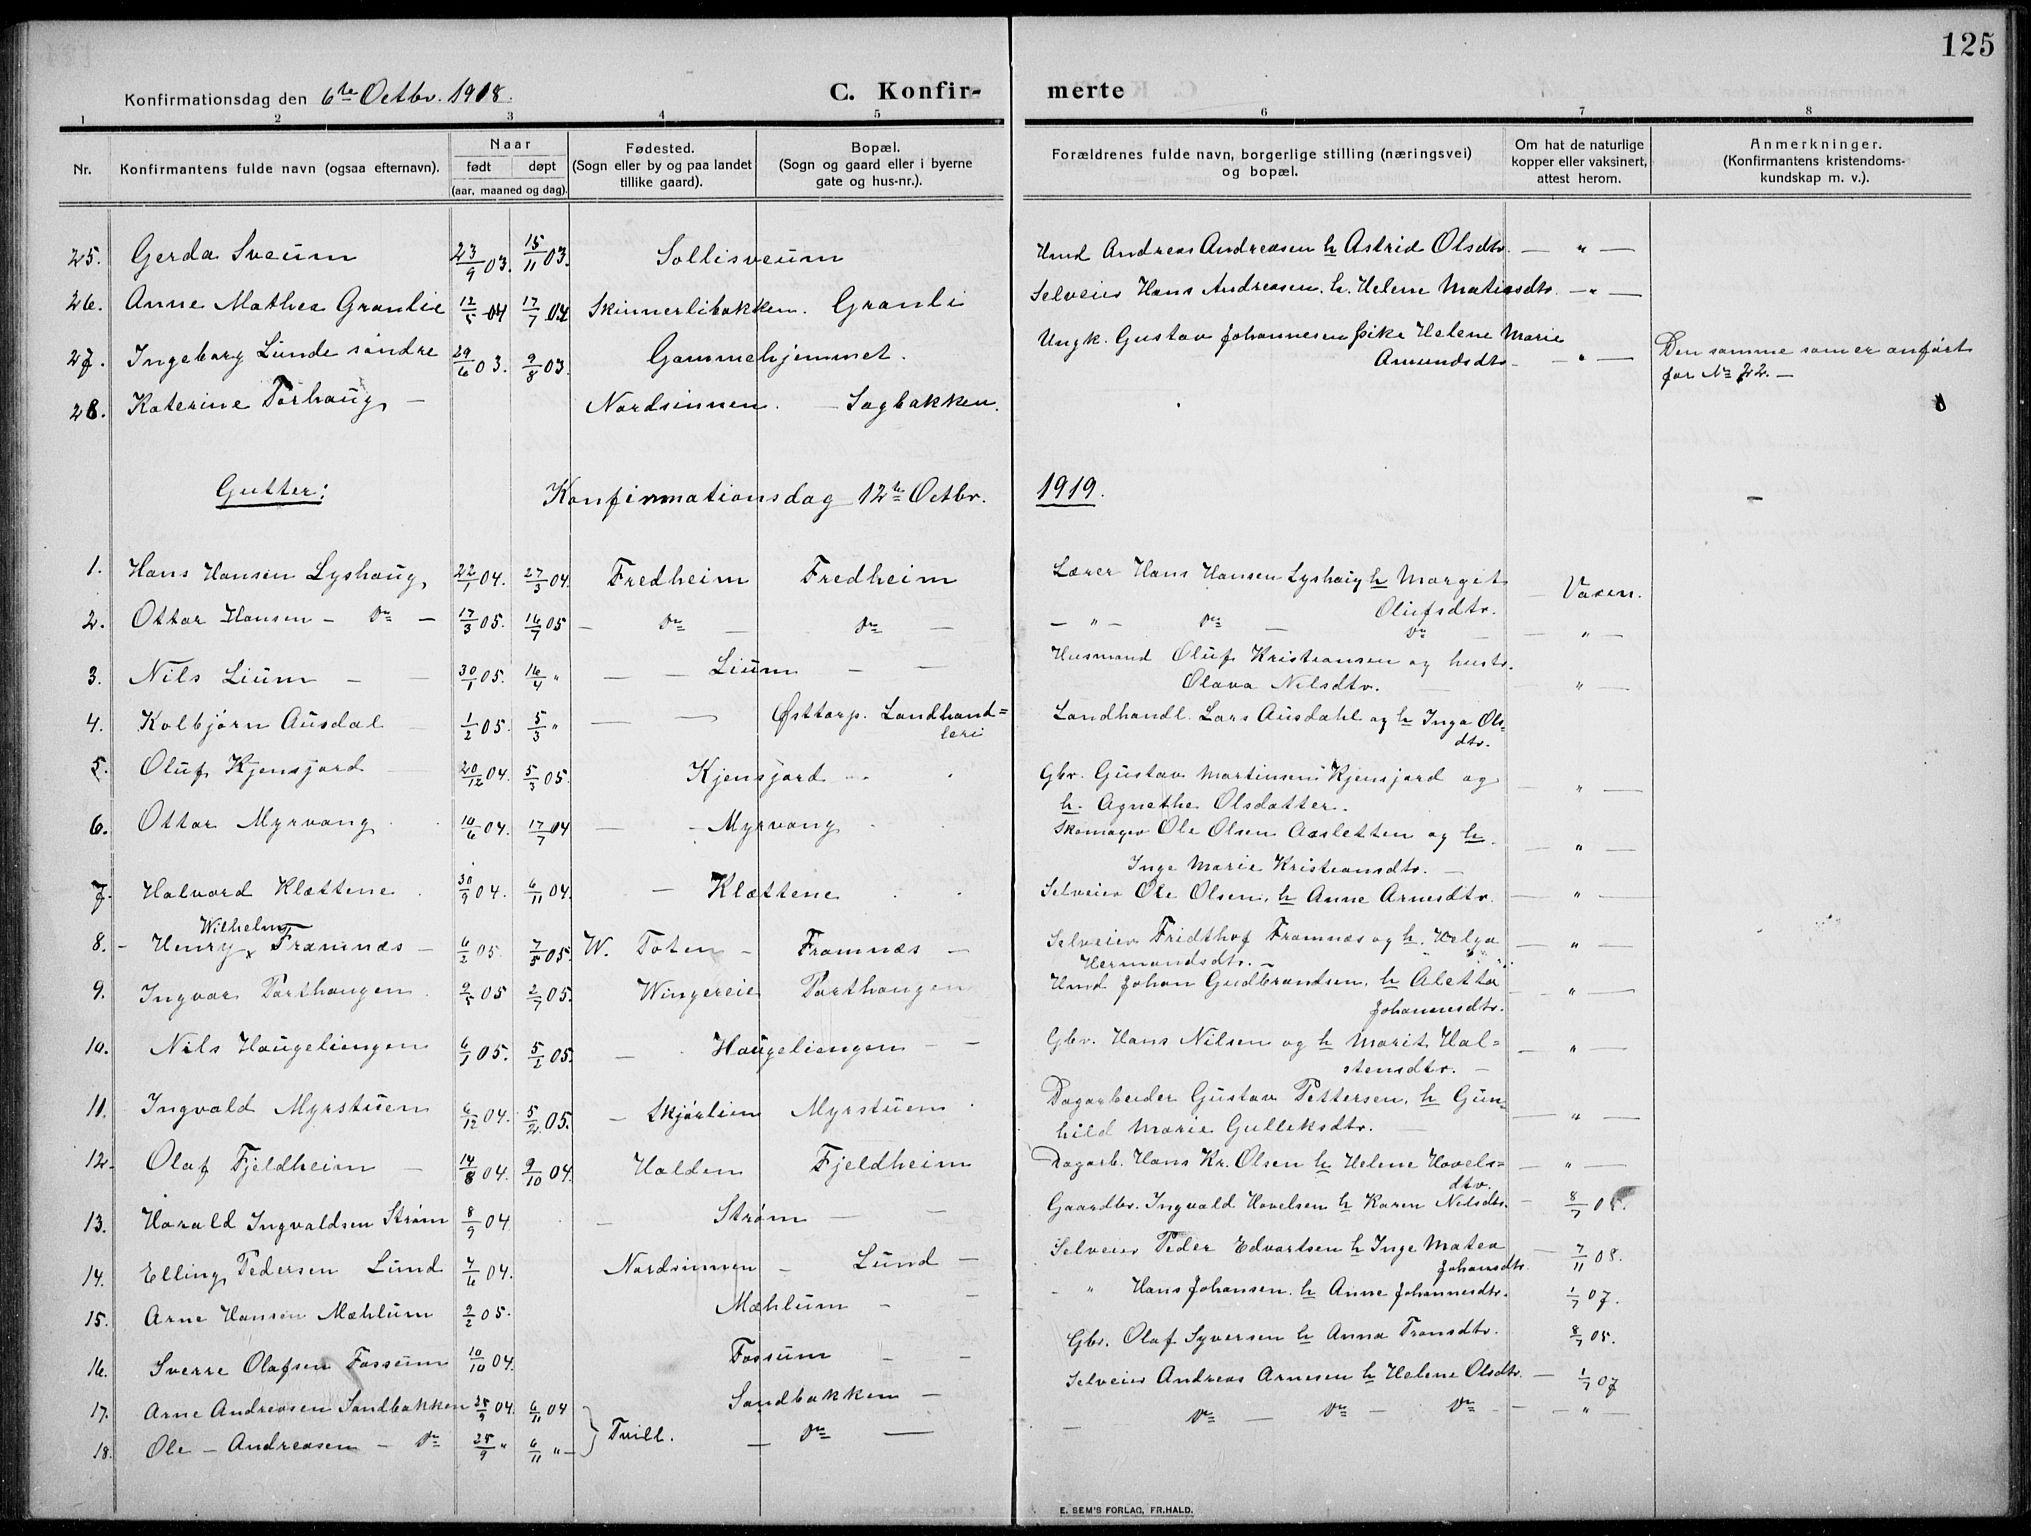 125
Konfirmationsdag den 6te Octbr. 1918. C. Konfir- merte
1 2 3 4 5 6 7 8
Nr. Konfirmantens fulde navn (ogsaa efternavn). Naar født døpt (aar, maaned og dag). Fødested. (Sogn eller by og paa landet tillike gaard). Bopæl. (Sogn og gaard eller i byerne gate og hus-nr.). Forældrenes fulde navn, borgerlige stilling (næringsvei) og bopæl. Om hat de naturlige kopper eller vaksinert, attest herom. Anmerkninger. (Konfirmantens kristendoms-kundskap m. v.).
25. Gerda Sveum 23/9 03. 15/11 03. Sollisveum Hmd Andreas Andreasen h Astrid Olsdtr. — " —
26. Anne Mathea Granlie 12/5 04 17/7 04 Skinnerlibakken. Granli Selveier Hans Andreasen. h. Helene Matiasdtr. — " —
27. Ingeborg Lunde søndre 29/6 03. 9/8 03. Gammehjemmet. Ungk. Gustav Johannesen Pike Helene Marie
Amundsdtr. — " — Den samme som er anført
for No 22. —
28. Katerine Torhaug — Nordsinnen. — Sagbakken.
Gutter: Konfirmationsdag 12te Octbr. 1919. —
1. Hans Hansen Lyshaug 22/1 04. 27/3 04. Fredheim Fredheim Lærer Hans Hansen Lyshaug h Margit
Olufsdtr. — Vaxen.
2. Ottar Hansen — Do — 17/3 05. 16/7 05 — Do — Do — — " — Do — Do — "
3. Nils Lium — — 30/1 05. 16/4 " — — Lium — — Husmand Oluf Kristiansen og hustr.
Olava Nilsdtr. — — " —
4. Kolbjørn Ausdal — 1/2 05. 5/3 " — — Østtorp. Landhand=
leri Landhandl. Lars Ausdahl og h Inga Ols-
dtr.
5. Oluf Kjensjord — 20/12 04. 5/3 05. Kjensjord Gbr. Gustav Martinsen Kjensjord og
h. Agnethe Olsdatter. — " —
6. Ottar Myrvang 10/6 04. 17/7 04 — — Myrvang Skomager Ole Olsen Aasletten og h.
Inge Marie Kristiansdtr. — — " —
7. Halvord Klættene 30/9 04. 6/11 04. — Klættene Selveier Ole Olsen. h Anne Arnesdtr. — " —
Wilhelm
8. - Henry x Framnæs — 6/2 05. 7/5 05. W. Toten — Framnæs — Selveier Fridthof Framnæs og h. Helga — " —
Hermandsdtr. —
9. Ingvar Parthaugen 9/5 05 2/7 05. Wingereie Parthaugen Hmd Johan Gudbrandsen. h Aletta
Johannesdtr. — " —
10. Nils Haugeliengen 6/1 05. 5/2 05. — Haugeliengen — — Gbr. Hans Nilsen og h Marit Hal=
stensdtr. — — " —
11. Ingvald Myrstuen 6/12 04. 5/2 05. — Skjørlien Myrstuen Dagarbeider Gustav Pettersen. h Gun-
hild Marie Gulleksdtr. — — " —
12. Olaf Fjeldheim — 14/8 04. 9/10 04. Halden Fjeldheim Dagarb. Hans Kr. Olsen h Helene Hovels=
dtr. — " —
13. Harald Ingvaldsen Strøm 8/9 04 — Strøm — — Gaardbr. Ingvald Hovelsen h Karen Nilsdtr. — 8/7 05.
14. Elling Pedersen Lund 7/6 04. Nordsinnen — Lund — Selveier Peder Edvartsen h Inge Matea
Johansdtr. — 7/11 08.
15. Arne Hansen Mæhlum 9/2 05. Mæhlum — — — " Hans Johansen. h Anne Johannesdtr. 1/7 07.
16. Sverre Olafsen Fossum 10/10 04. Fossum — — Gbr. Olaf Syversen h Anna Tronsdtr. 8/7 05.
17. Arne Andreasen Sandbakken 25/9 04. 6/11 04 Tvill. Sandbakken — Selveier Andreas Arnesen h Helene Olsdtr. — 1/7 07
18. Ole — Andreasen — Do 25/9 " 6/11 " — — Do — — Do — Do — Do — — " —
E. SEM'S FORLAG, FR.HALD.